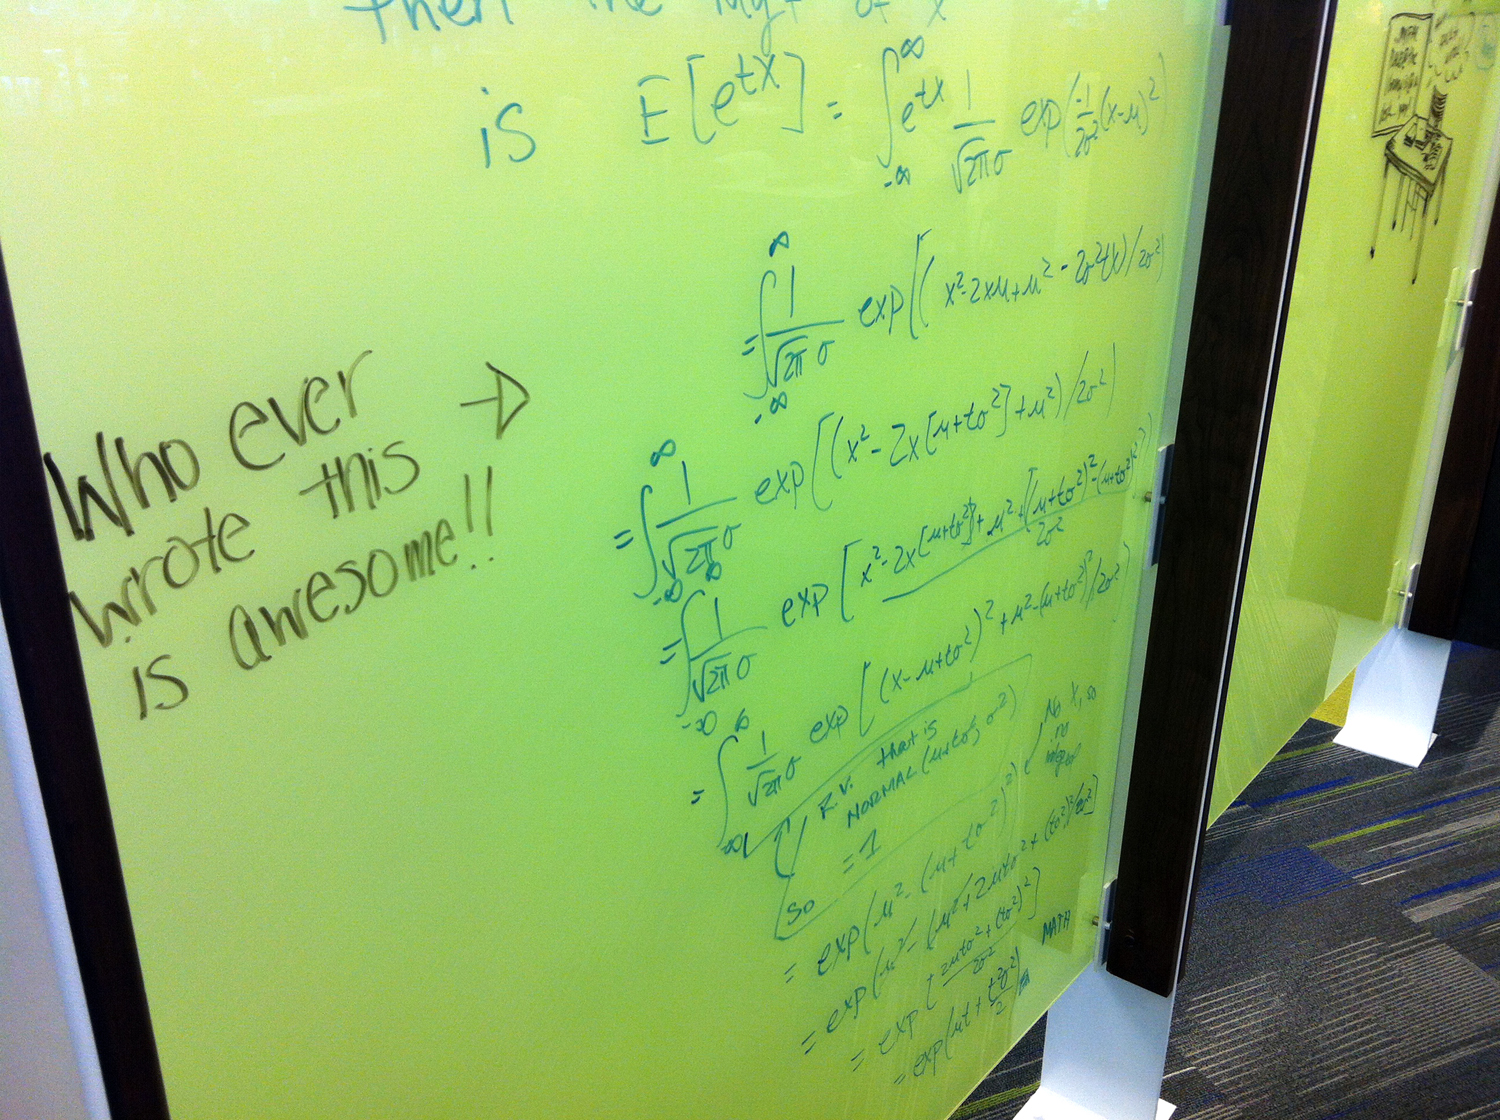 then the Mgf of x
is E[e^tx] = ∫_-∞^∞ e^tx 1/√2π σ exp(-1/2σ² (x-μ)²)
= ∫_-∞^∞ 1/√2π σ exp[(x²-2xμ+μ²-2σ²tx)/2σ²)
= ∫_-∞^∞ 1/√2π σ exp[(x²-2x[μ+tσ²]+μ²)/2σ²)
= ∫_-∞^∞ 1/√2π σ exp[x²-2x[μ+tσ²]+μ²+[(μ+tσ²)²-(μ+tσ²)²]/2σ²
= ∫_-∞^∞ 1/√2π σ exp[(x-μ+tσ²)²+μ²-(μ+tσ²)²/2σ²)
R.V. that is
NORMAL(μ+tσ², σ²)
so = 1
No X, so
no
integral
= exp(μ²-(μ+tσ²)²)
= exp(μ²-(μ²+2μtσ²+(tσ²)²/2σ²]
= exp(+2μtσ²+(tσ²)²)/2σ²
MATH
= exp(μt+t²σ²/2)
Who ever
wrote this →
is awesome!!